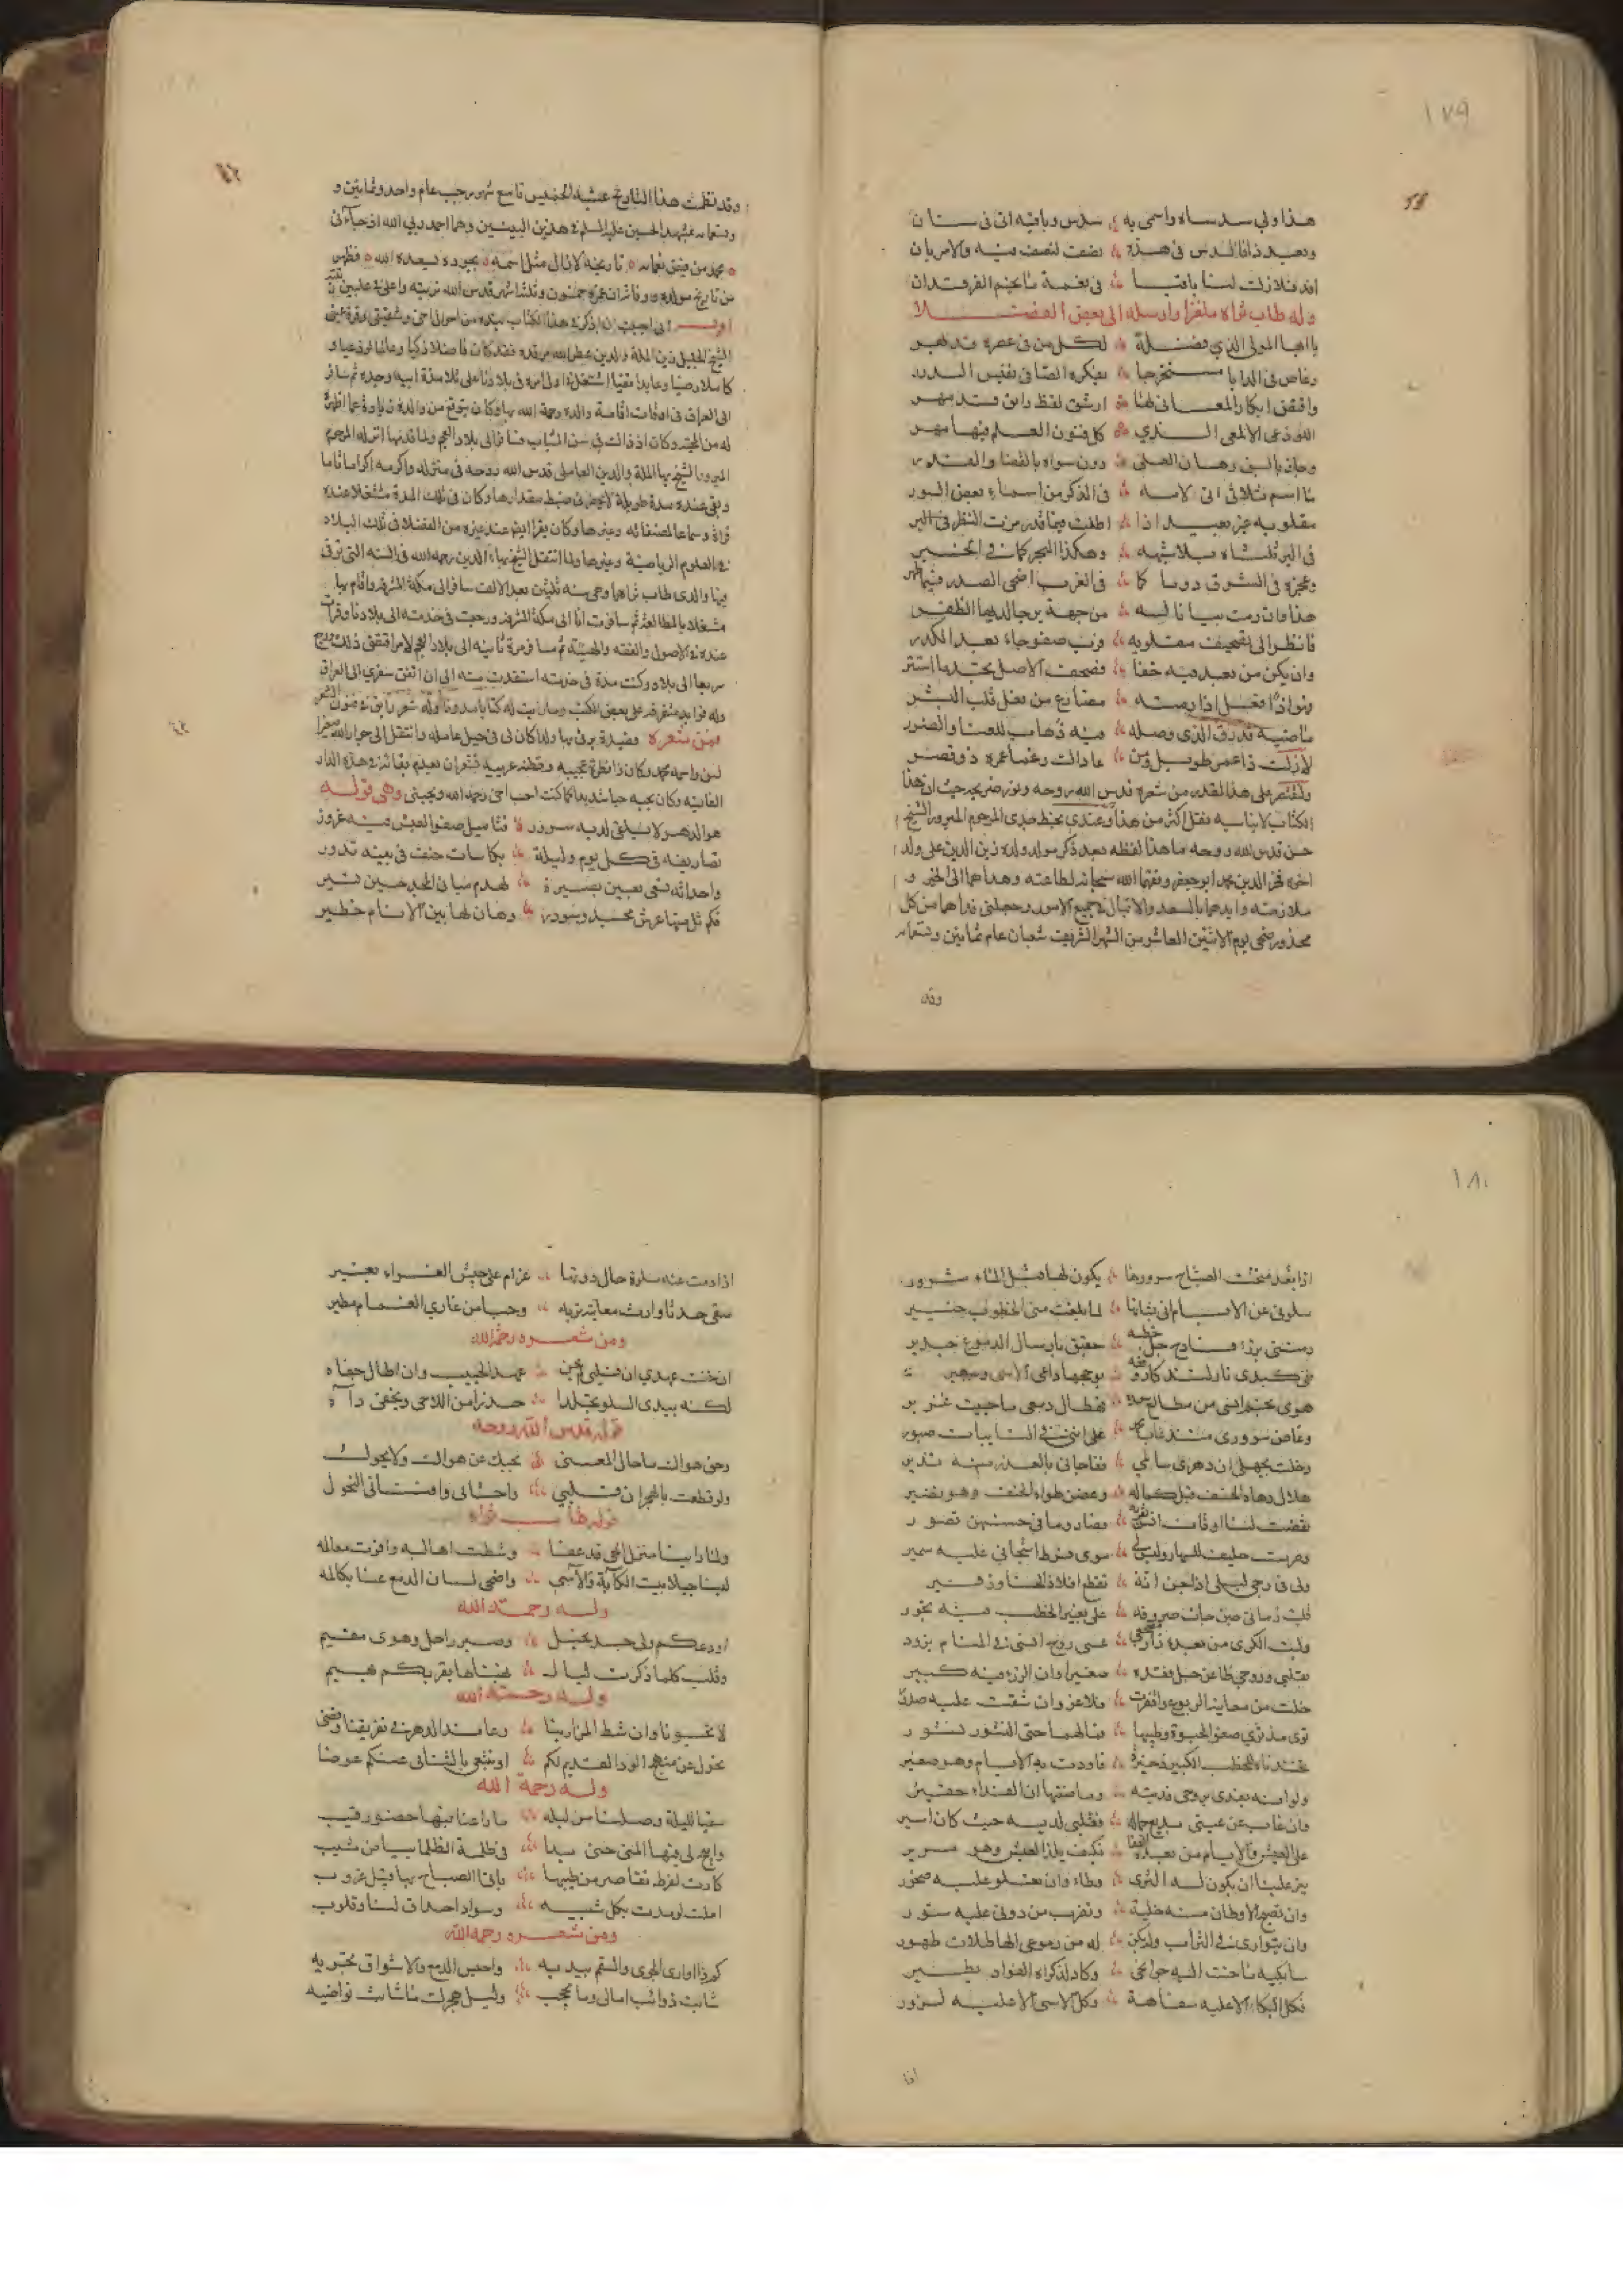 ١٧٩
هذا وفي سدساه واسمى به سدس وباقيه اتى في ستان
اخذ فلا زلت لنا باقيا في نعمة ما نجم الفرقدان
وله طاب ثراه ملغزا وارسله الى بعض الفضلا
يا ايها المولى الذي فضله لكل من في عصره قد بهر
وغاص في الدايا مستخرجا بفكره الصافي نفيس الدرر
وافتض ابكار المعاني لنا ارشق لفظ راق قد مهر
اللوذعي الالمعي الذي كل فنون العلم فيها مهر
وحاز بالسبق رهان العلى دون سواه بالقضا والقدر
ما اسم ثلاثي اتى لامه في الذكر من اسماء بعض السور
مقلوبه غير بعيد اذا اطلت فيما قدر مزت النظر
في البر ثلثاه بلا شبهه وهكذا البحر كما في الخبر
وعجزه في الشرق دوما كما في الغرب اضحى الصدر
هذا وان رمت بيانا لسه من جهة يرجى لديها الظفر
فانظر الى تصحيف مقلوبه ورب صفو جاء بعد الكدر
وان يكن من بعد فيه خفا فصحف الاصل تجد ما استتر
لا زلت ذا عمر طويل ومن عاداك رغما عمره ذو قصر
ولنقتصر على هذا القدر من شعره قدس الله روحه ونور ضريحه حيث ان هذا
الكتاب لا يناسبه نقل اكثر من هذا وعندي بخط جدي المرحوم المبرور الشيخ
حسن قدس الله روحه ما هذا لفظه بعد ذكر مولد ولده زين الدين على ولد
اخوه فخر الدين محمد ابو جعفر وفقهما الله سبحانه لطاعته وهداهما الى الخير و
ملازمته وايدهما بالسعد والاقبال في جميع الامور وجعلني فداهما من كل
محذور ضحى يوم الاثنين العاشر من الشهر الشريف شعبان عام ثمانين وتسعمائه
وقد
وقد نظمت هذا التاريخ عشية الخميس تاسع شهر رجب عام واحد وثمانين و
وتسعمائه بمشهد الحسين عليه السلم في هذين البيتين وهما احمد ربي الله اذ جاءني
محمد من فيض نعماه تاريخه لا زال مثل اسمه بجوده يسعده الله فظهر
من تاريخ مولده ووفاته ان عمره خمسون وثلثة اشهر قدس الله تربته واعلى في عليين رتبته
اني احببت ان اذكر في هذا الكتاب نبذه من احوال اخي وشقيقي وقرة عيني
الشيخ الجليل زين الملة والدين عطر الله مرقده فقد كان فاضلا ذكيا وعالما لوذعيا و
كاملا رضيا وعابدا تقيا اشتغل في اول امره في بلادنا على تلامذة ابيه وجده ثم سافر
الى العراق في اوقات اقامة والده رحمة الله بها وكان يتوقع من والده
له من المحبه وكان اذ ذاك في سن الشباب فسافر الى بلاد العجم ولما قدمها انزله المرحوم
المبرور الشيخ بها الملة والدين العاملي قدس الله روحه في منزله واكرمه اكراما تاما
وبقي عنده مدة طويلة لا يحضرني ضبط مقدارها وكان في تلك المدة مشتغلا عنده
قراءة وسماعا لمصنفاته وغيرها وكان يقرا ايضا عند غيره من الفضلا في تلك البلاد
في العلوم الرياضية وغيرها ولما انتقل الشيخ بهاء الدين رحمه الله في السنه التي توفي
فيها والدي طاب ثراهما وهي سنه ثلثين بعد الالف سافر الى مكة المشرفه واقام بها
مشتغلا بالمطالعه ثم سافرت انا الى مكة المشرفه ورجعت في خدمته الى بلادنا وقرات
عنده في الاصول والفقه والهيئة ثم سافر مرة ثانيه الى بلاد العجم لامر اقتضى ذلك ورجع
سريعا الى بلاده وكنت مدة في خدمته استفدت منه الى ان اتفق سفري الى العراق
وله فوايد متفرقه على بعض الكتب وما رايت له كتابا مدونا وله شعر رايق في فنون الشعر
فمن شعره قصيدة يرثي بها ولدا كان لي في جبل عامله وانتقل الى جوار الله صغيرا
لبن واسمه محمد وكان ذا نظرة عجيبه وفطنه غريبه تشعران بعدم بقائه في هذه الدار
الفانيه وكان يحبه حبا شديدا كما كنت احب اخي رحمه الله ويحبني وهي قوله
هو الدهر لا يلفى لديه سرور فتاميل صفو العيش منه غرور
تصاريفه في كل يوم وليلة بكاسات حتف في بنيه تدور
واحداثه تسعى بعين بصيرة لهدم مباني المجد حين تشير
فكم ثل منها عرش مجد وسودد وهان لها بين الانام خطير
١٨٠
اذا بغد منحت الصباح سرورها يكون لها قبل المساء شرور
سلوني عن الايام اني بشانها لما بلغت مني الخطوب خبير
رمتني برزء فادح جل خطبه حقيق بارسال الدموع جدير
وغاض سروري منذ غاب محمد على انني في النايبات صبور
وخلت بجهلي ان دهري مسالمي ففاجاني بالغدر منه نذير
هلال دهاه الخسف قبل كماله وغصن طواه الحتف وهو نضير
تقضت لنا اوقات انس بقربه قصار وما في حسنهن قصور
وصرت حليف للنهار وليس لي سوى فرط اشجاني عليه سمير
فليت زماني حين جارت صروفه على بغير الخطب منه يجور
وليت الكرى من بعده زار عسى روح انسي في المنام يزور
بقلبي وروحي ظاعن جل فقده صغيرا وان الرزء فيه كبير
خلت من معانيه الربوع واقفرت فلا غرو ان شقت عليه صدور
ثوى مذ ثوى صفو الحيوة وطيبها فما لهما حتى النشور نشور
تخذناه للخطب الكبير ذخيرة فاودت به الايام وهو صغير
ولو انه يفدى بروحي فديته وما ضنها ان الفداء حقير
وان غاب عن عيني بديع جماله فقلبي لديه حيث كان اسير
على العيش والايام من بعده العفا فكيف يلذ العيش وهو مرير
يعز علينا ان يكون له الثرى وطاء وان تعلو عليه صخور
وان تصبح الاوطان منه خلية وتضرب من دوني عليه ستور
وان يتوارى في التراب ولم يكن له من دموعي الهاطلات طهور
سابكيه ما حنت اليه جوانحي وكاد لذكراه الفواد يطير
فكل البكاء الا عليه سفاهة وكل الاسى الا عليه لزور
اذا
اذا رمت عنه سلوة حال دونها غرام على جيش العزاء يغير
سقى جدثا وارت معاليه تربه وحيا من غادي الغمام مطير
ومن شعره رحمه الله
ان خنت عهدي ان قلبي لم يخن عهد الحبيب وان اطال جفاه
لكنه يبدي السلو تجلدا حذرا من اللاحي ويخفي داه
وله قدس الله روحه
وحق هواك ما حال المعنى بحبك عن هواك ولا يحول
ولو قطعت بالهجران قلبي واحشائي وافناني النحول
وله طاب ثراه
ولما راينا منزل الحي قد عفا وشطت اهاليه واقوت معالمه
لبسنا جلابيب الكآبة والاسى واضحى لسان الدمع عنا يكالمه
وله رحمة الله
اودعكم ولي جسد نحيل وصبر راحل وهوى مقيم
وقلب كلما ذكرت ليال بحناها بقربكم يهيم
وله رحمة الله
لا تحسبونا وان شط المزار بنا وعاند الدهر في تفريقنا وقضى
نحول عن منهج الود القديم لكم او نبتغي بالتنائي عنكم عوضا
وله رحمة الله
سقيا لليلة وصلنا من ليله ما راعنا فيها حضور رقيب
كادت لفرط تقاصر من طيبها ياتي الصباح بها قبيل غروب
املت لو مدت بكل شبيبه وسواد احداق لنا وقلوب
ومن شعره رحمه الله
كم ذا اواري الجوى والسقم يبديه واحبس الدمع والاشواق تجريه
شابت ذوائب امالي وما نجحت وليل هجرك ما شابت نواصيه